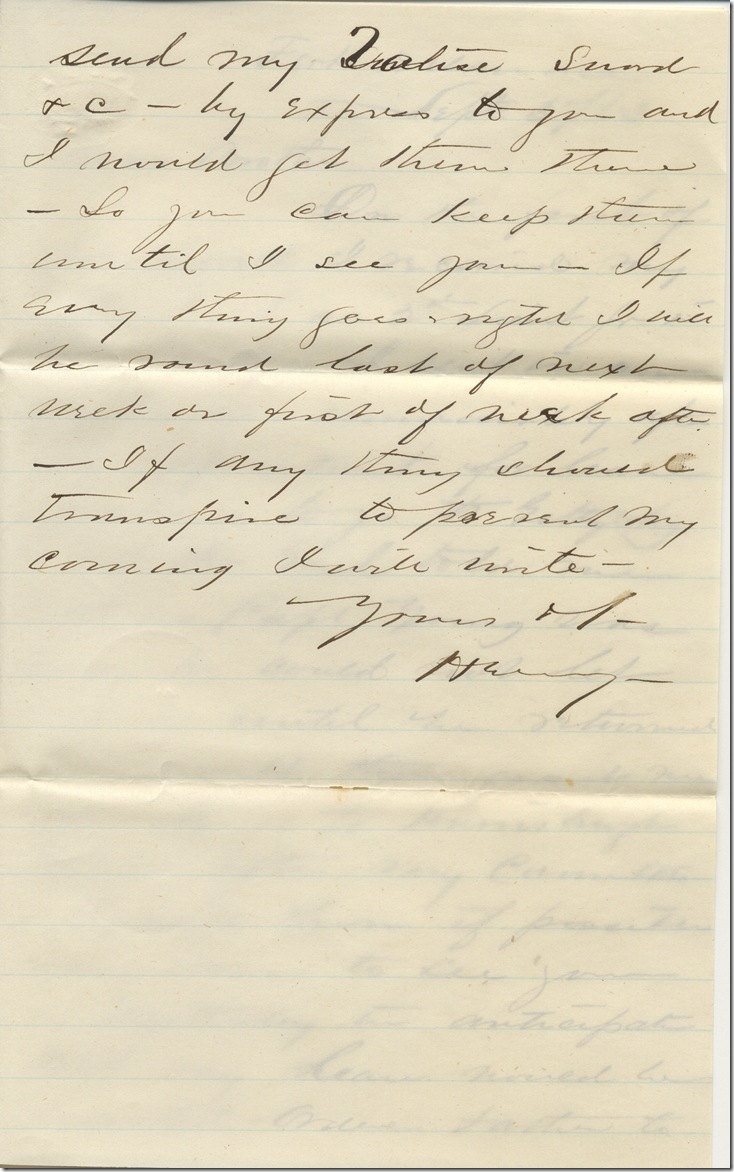 send my Valise Sword
& c – by express to you and
I would get them there
– So you can keep them
until I see you – If
every thing goes right I will
be round last of next
week or first of week after
– If any thing should
transpire to prevent my
coming I will write –
Yours &c –
Henry –